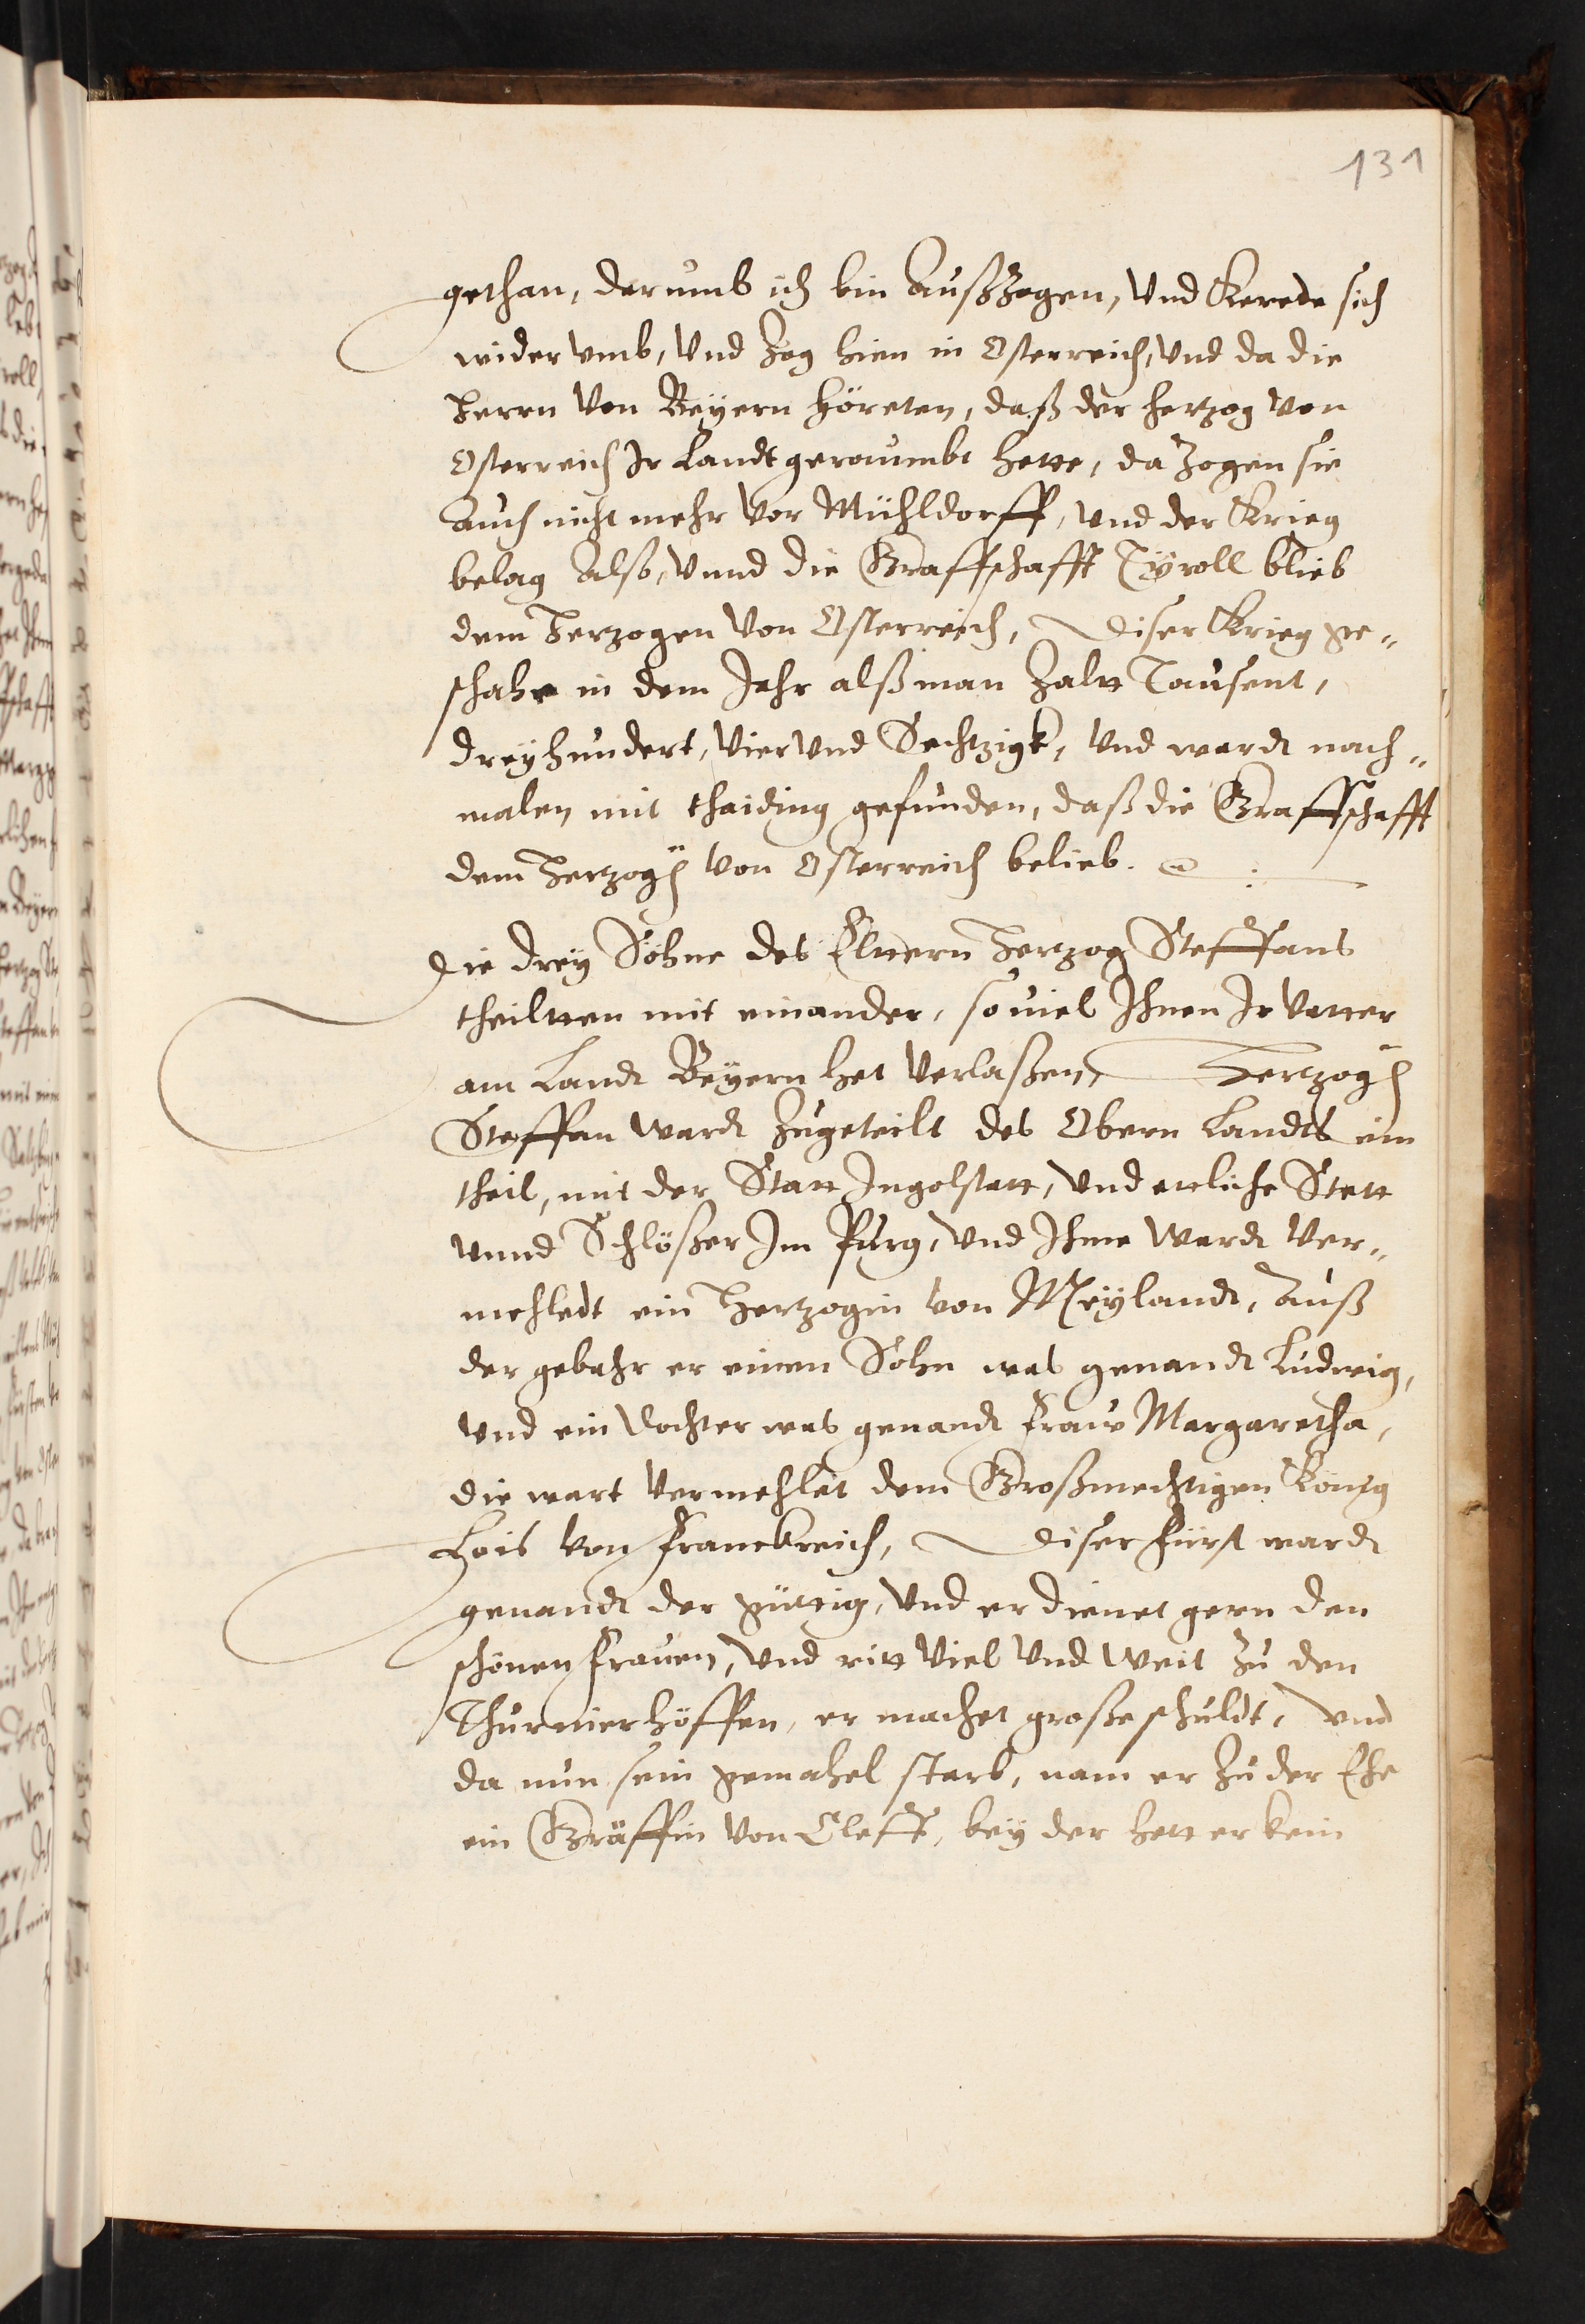 131
gethan, darumb ich bin Außzogen, Vnd Kerete sich
wider vmb, Vnd Zog hien in Osterreich, Vnd da die
Herrn Von Beÿern höreten, daß der hertzog von
Osterreich Ir Landt geraumbt hette, da Zogen sie
Auch nicht mehr Vor Mühldorff, Vnd der Krieg
belag Also, Vnnd die Graffschafft Tÿroll blieb
dem Hertzogen Von Osterreich, Diser Krieg ge„
schahe in dem Jahr alß man Zaltt Tausent,
dreÿhundert, Vier Vnd Sechtzigk, Vnd wardt nach„
malen mit thaiding gefunden, daß die Graffschafft
dem Hertzogen Von Osterreich belieb.
Die dreÿ Söhne des Elttern Hertzog Steffans
theiltten mit einander, souiel Ihnen Ir Vatter
am Landt Beÿern het Verlaßen, Hertzogen
Steffan wardt Zugeteilt des Obern Landts ein
theil, mit der Statt Ingolstatt, Vnd ettliche Stett
Vnnd Schlößer Im Purg, Vnd Ihme wardt Ver„
mehledt ein Hertzogin von Meÿlandt, Auß
der gebahr er einen Sohn was genandt Ludwig,
Vnd ein Tochter was genandt Fraw Margaretha,
die wart Vermehlet dem Großmechtigen König
Lois Von Franckreich, Diser Fürst wardt
genandt der güttig, Vnd er dienet gern den
schönen Frauen, Vnd ritt Viel Vnd Weit Zu den
Thurnierhöffen, er machet große schuldt, Vnd
da nun sein gemahel starb, nam er Zu der Ehe
ein Gräffin Von Cleff, beÿ der hett er kein